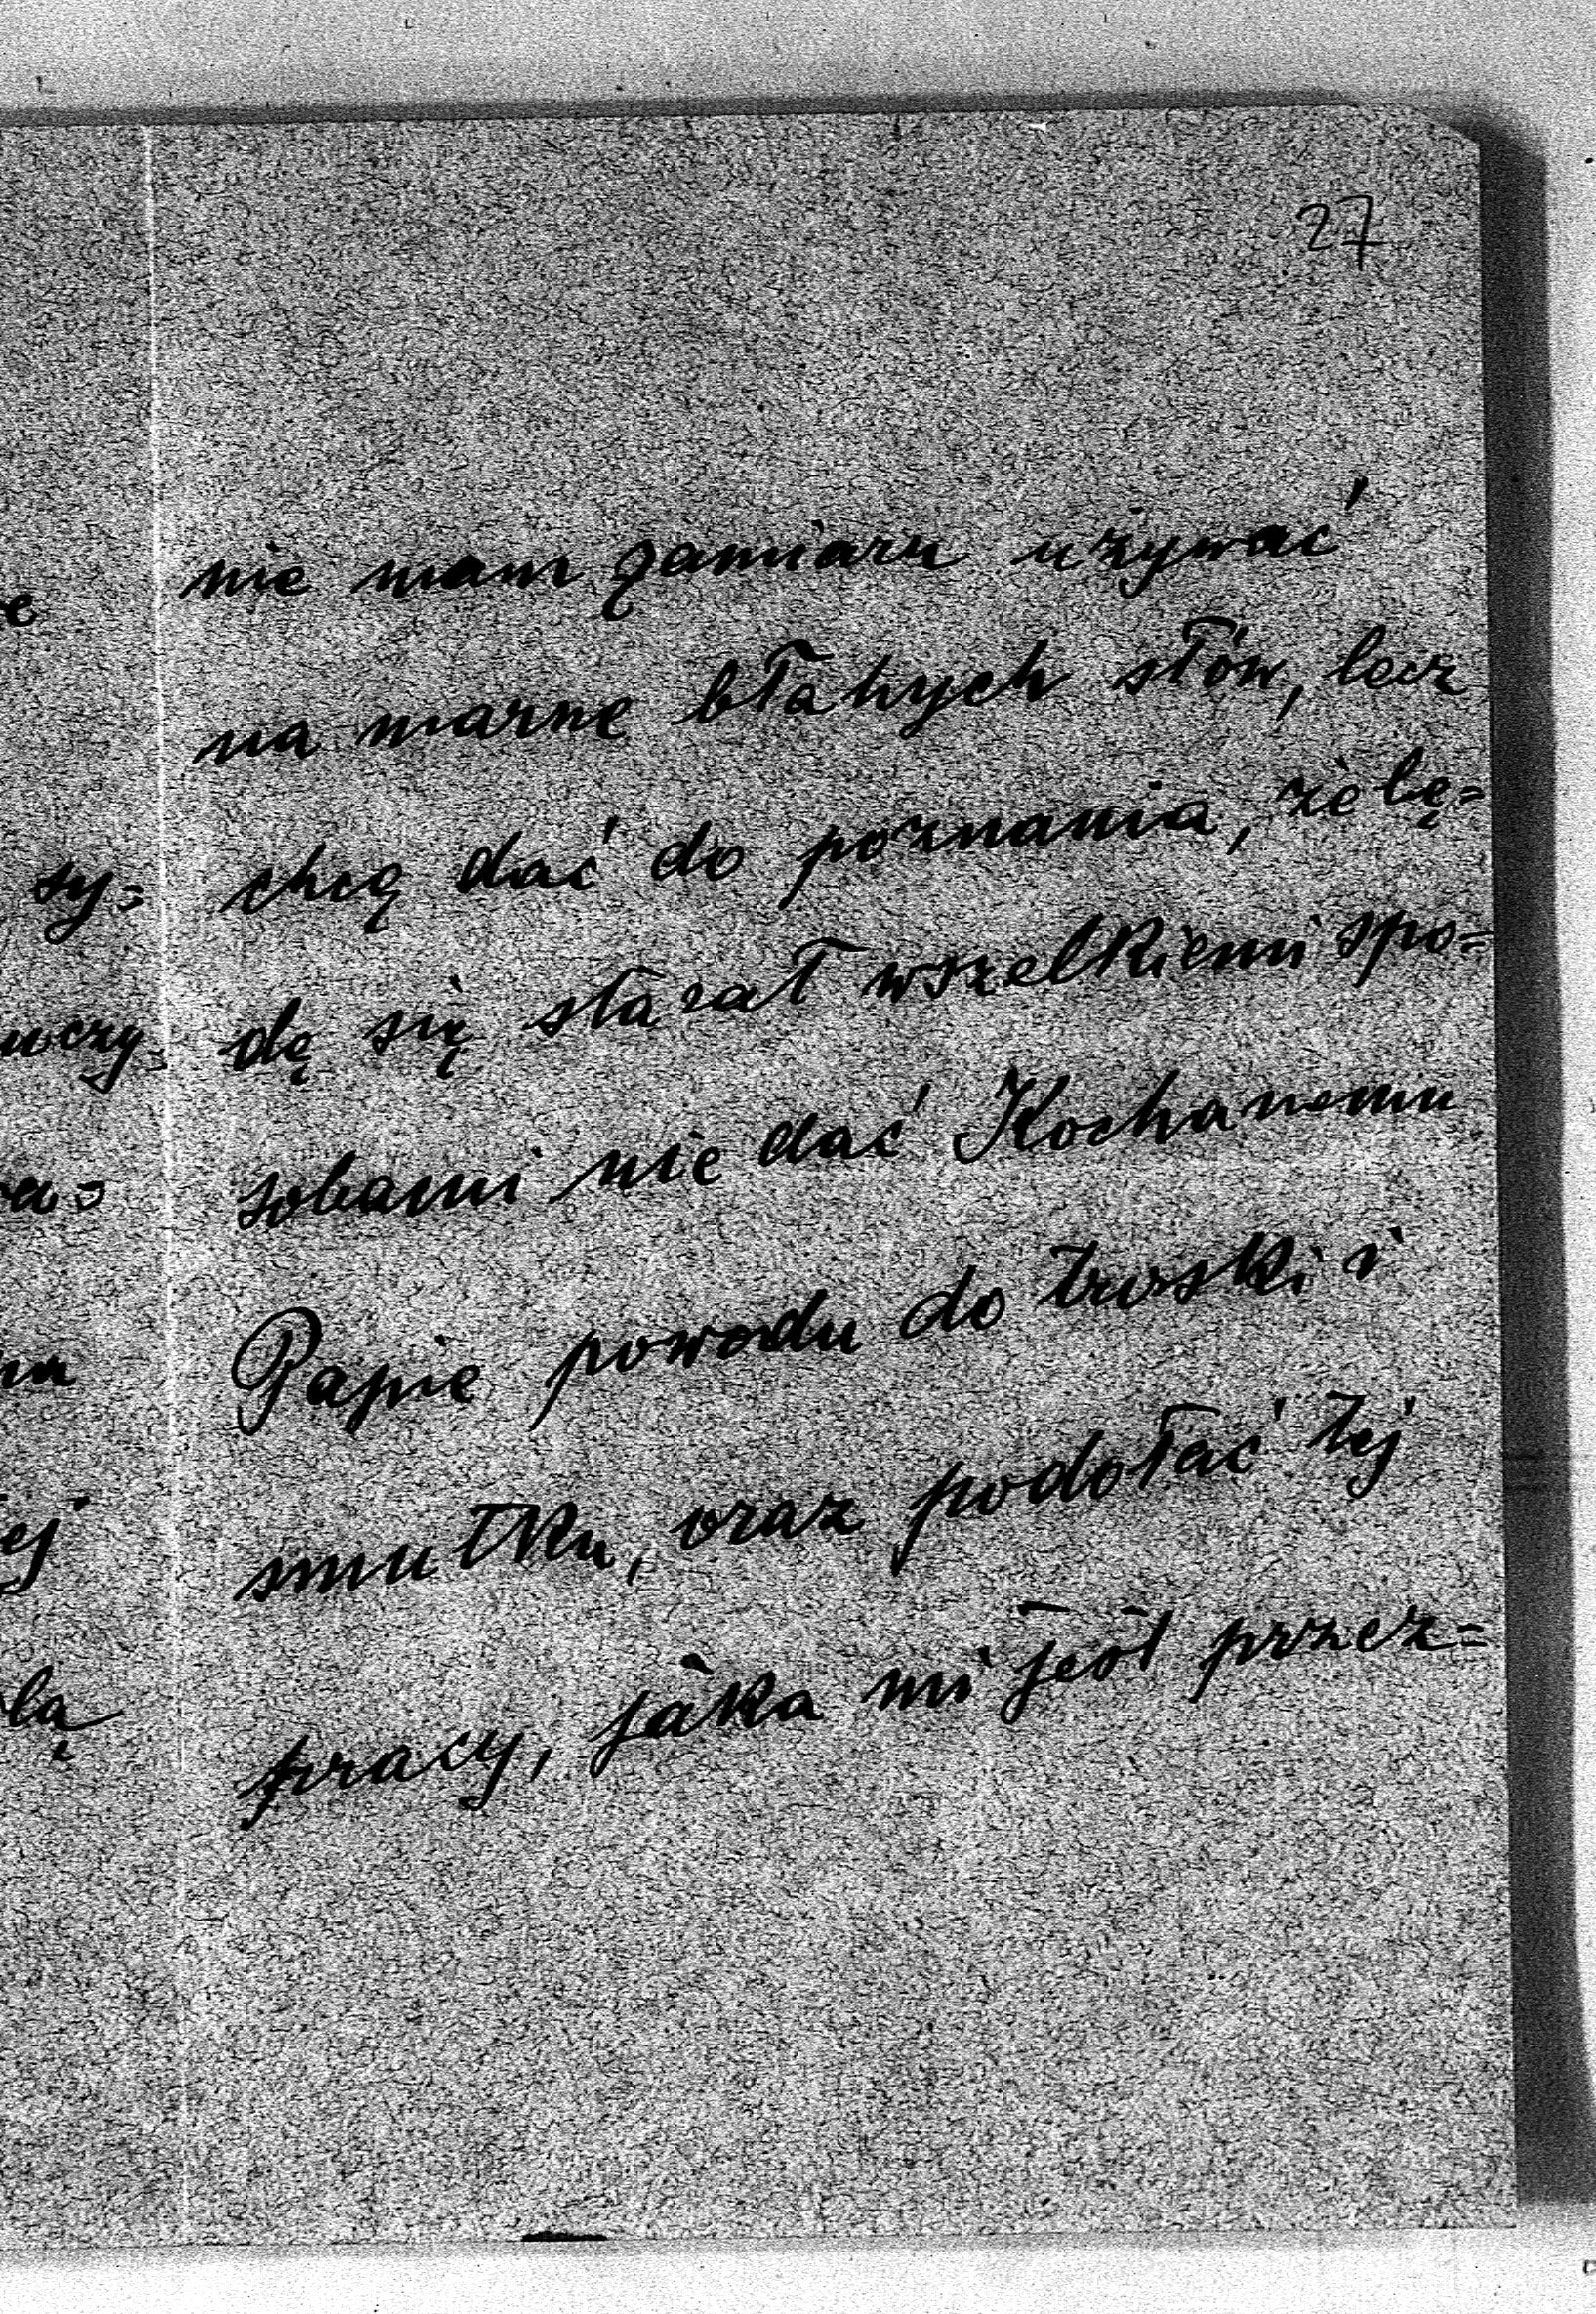 27
nie mam zamiaru używać
na marne błahych słów, lecz
chcę dać do poznania, że bę=
dę się starał wszelkiemi spo=
sobami nie dać Kochanemu
Papie powodu do troski i
smutku, oraz podołać tej
pracy, jaka mi jest przez=